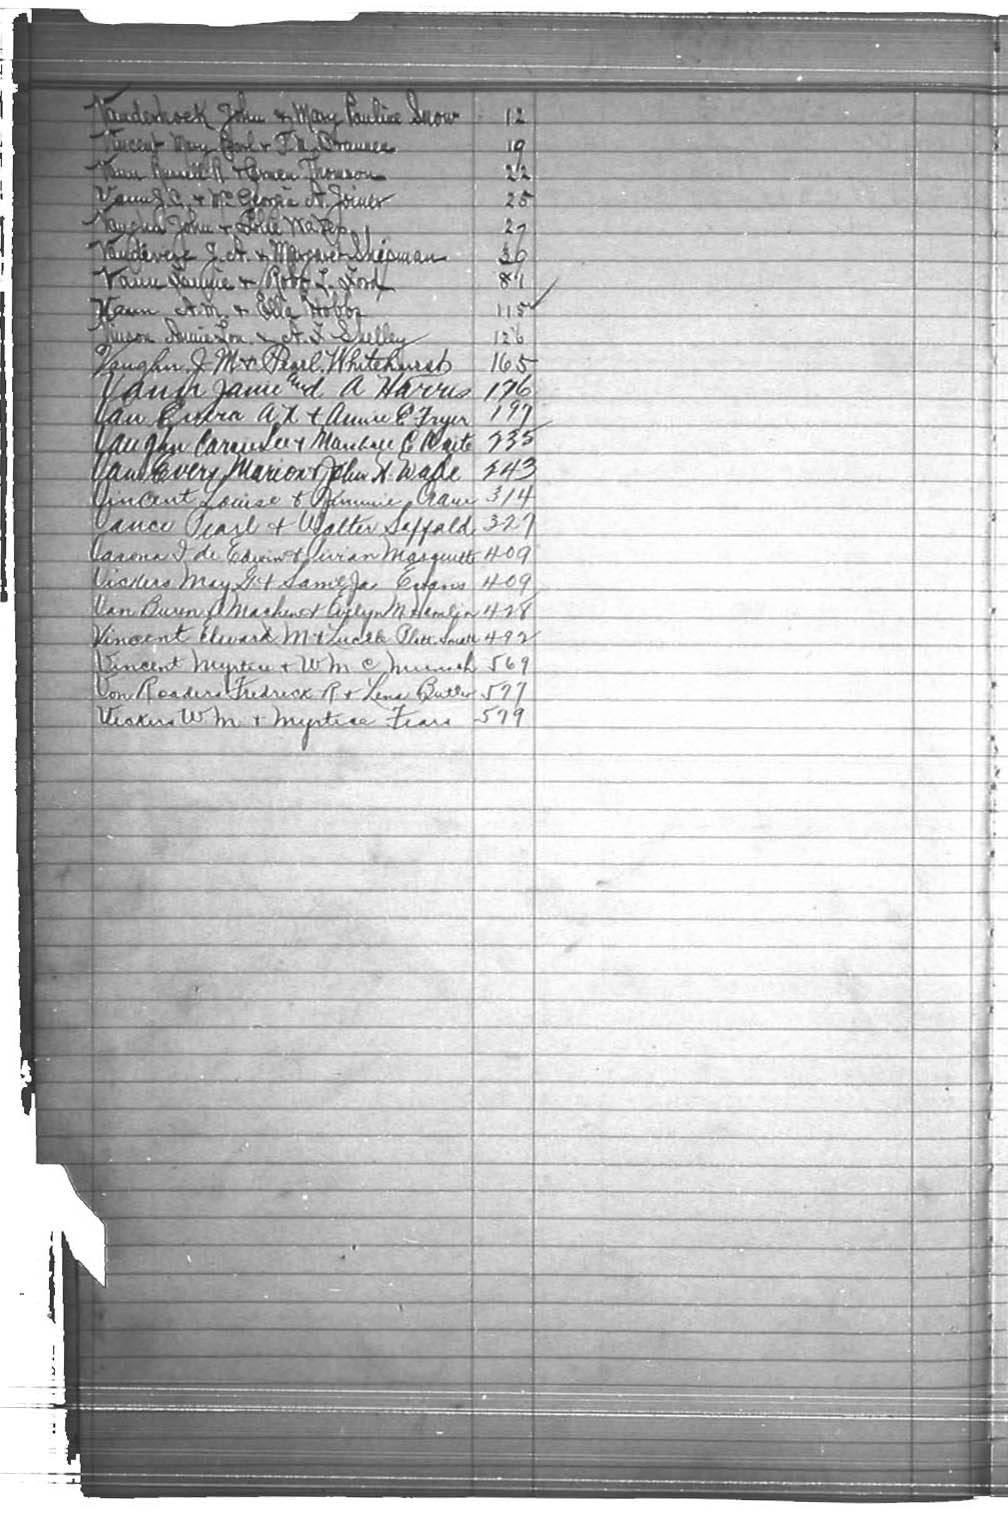 Vanderhoek John & Mary Pauline Snow 12
Vincent Mary Pearl & F. N. 19
Vann Russell R & Thomson 22
Vann J. C. & Mc George A. Joiner 25
Vaughn John & Lollie Waters 27
Vandevere J. A. & Margaret Shipman 30
Vann Fannie & Robt L. Ford 87
Vann A. M. & Ella Hobbs 115
Vinson Annie Lou & A. F. Shelley 126
Vaughn J. M & Pearl Whitehurst 165
Vann Janie and A Harris 176
Van A. & Annie E Fryer 197
Vaughn Carrie Lee & C Waite 235
Van Every Marion & John H. Wade 243
Vincent Louise & Jimmie Crane 314
Vance Pearl & Walter Saffold 327
I de Edwin & Vivian Marquette 409
Vickers May G & Saml Ja Evans 409
Van Buren & Evelyn M Hamlin 428
Vincent Edward M & Lucile Smith 492
Vincent Myrtice & W M C 569
Von Roaders Fredrick R & Lena Butler 577
Vickers W M & Myrtice Fears 579